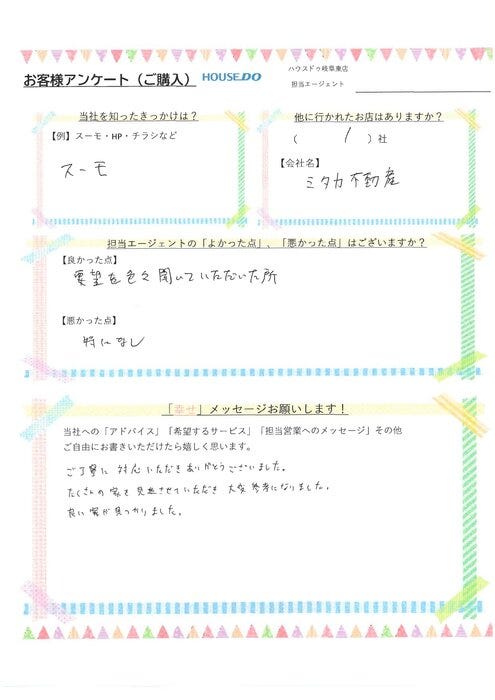 お客様アンケート（ご購入）
HOUSE.DO
ハウスドゥ岐阜東店
担当エージェント
当社を知ったきっかけは？
【例】スーモ・HP・チラシなど
スーモ
他に行かれたお店はありますか？
（ 1 ）社
【会社名】
ミタカ不動産
担当エージェントの「よかった点」、「悪かった点」はございますか？
【良かった点】
要望を色々聞いていただいた所
【悪かった点】
特になし
「幸せ」メッセージお願いします！
当社への「アドバイス」「希望するサービス」「担当営業へのメッセージ」その他
ご自由にお書きいただけたら嬉しく思います。
ご丁寧に対応いただきありがとうございました。
たくさんの家を見させていただき大変参考になりました。
良い家が見つかりました。